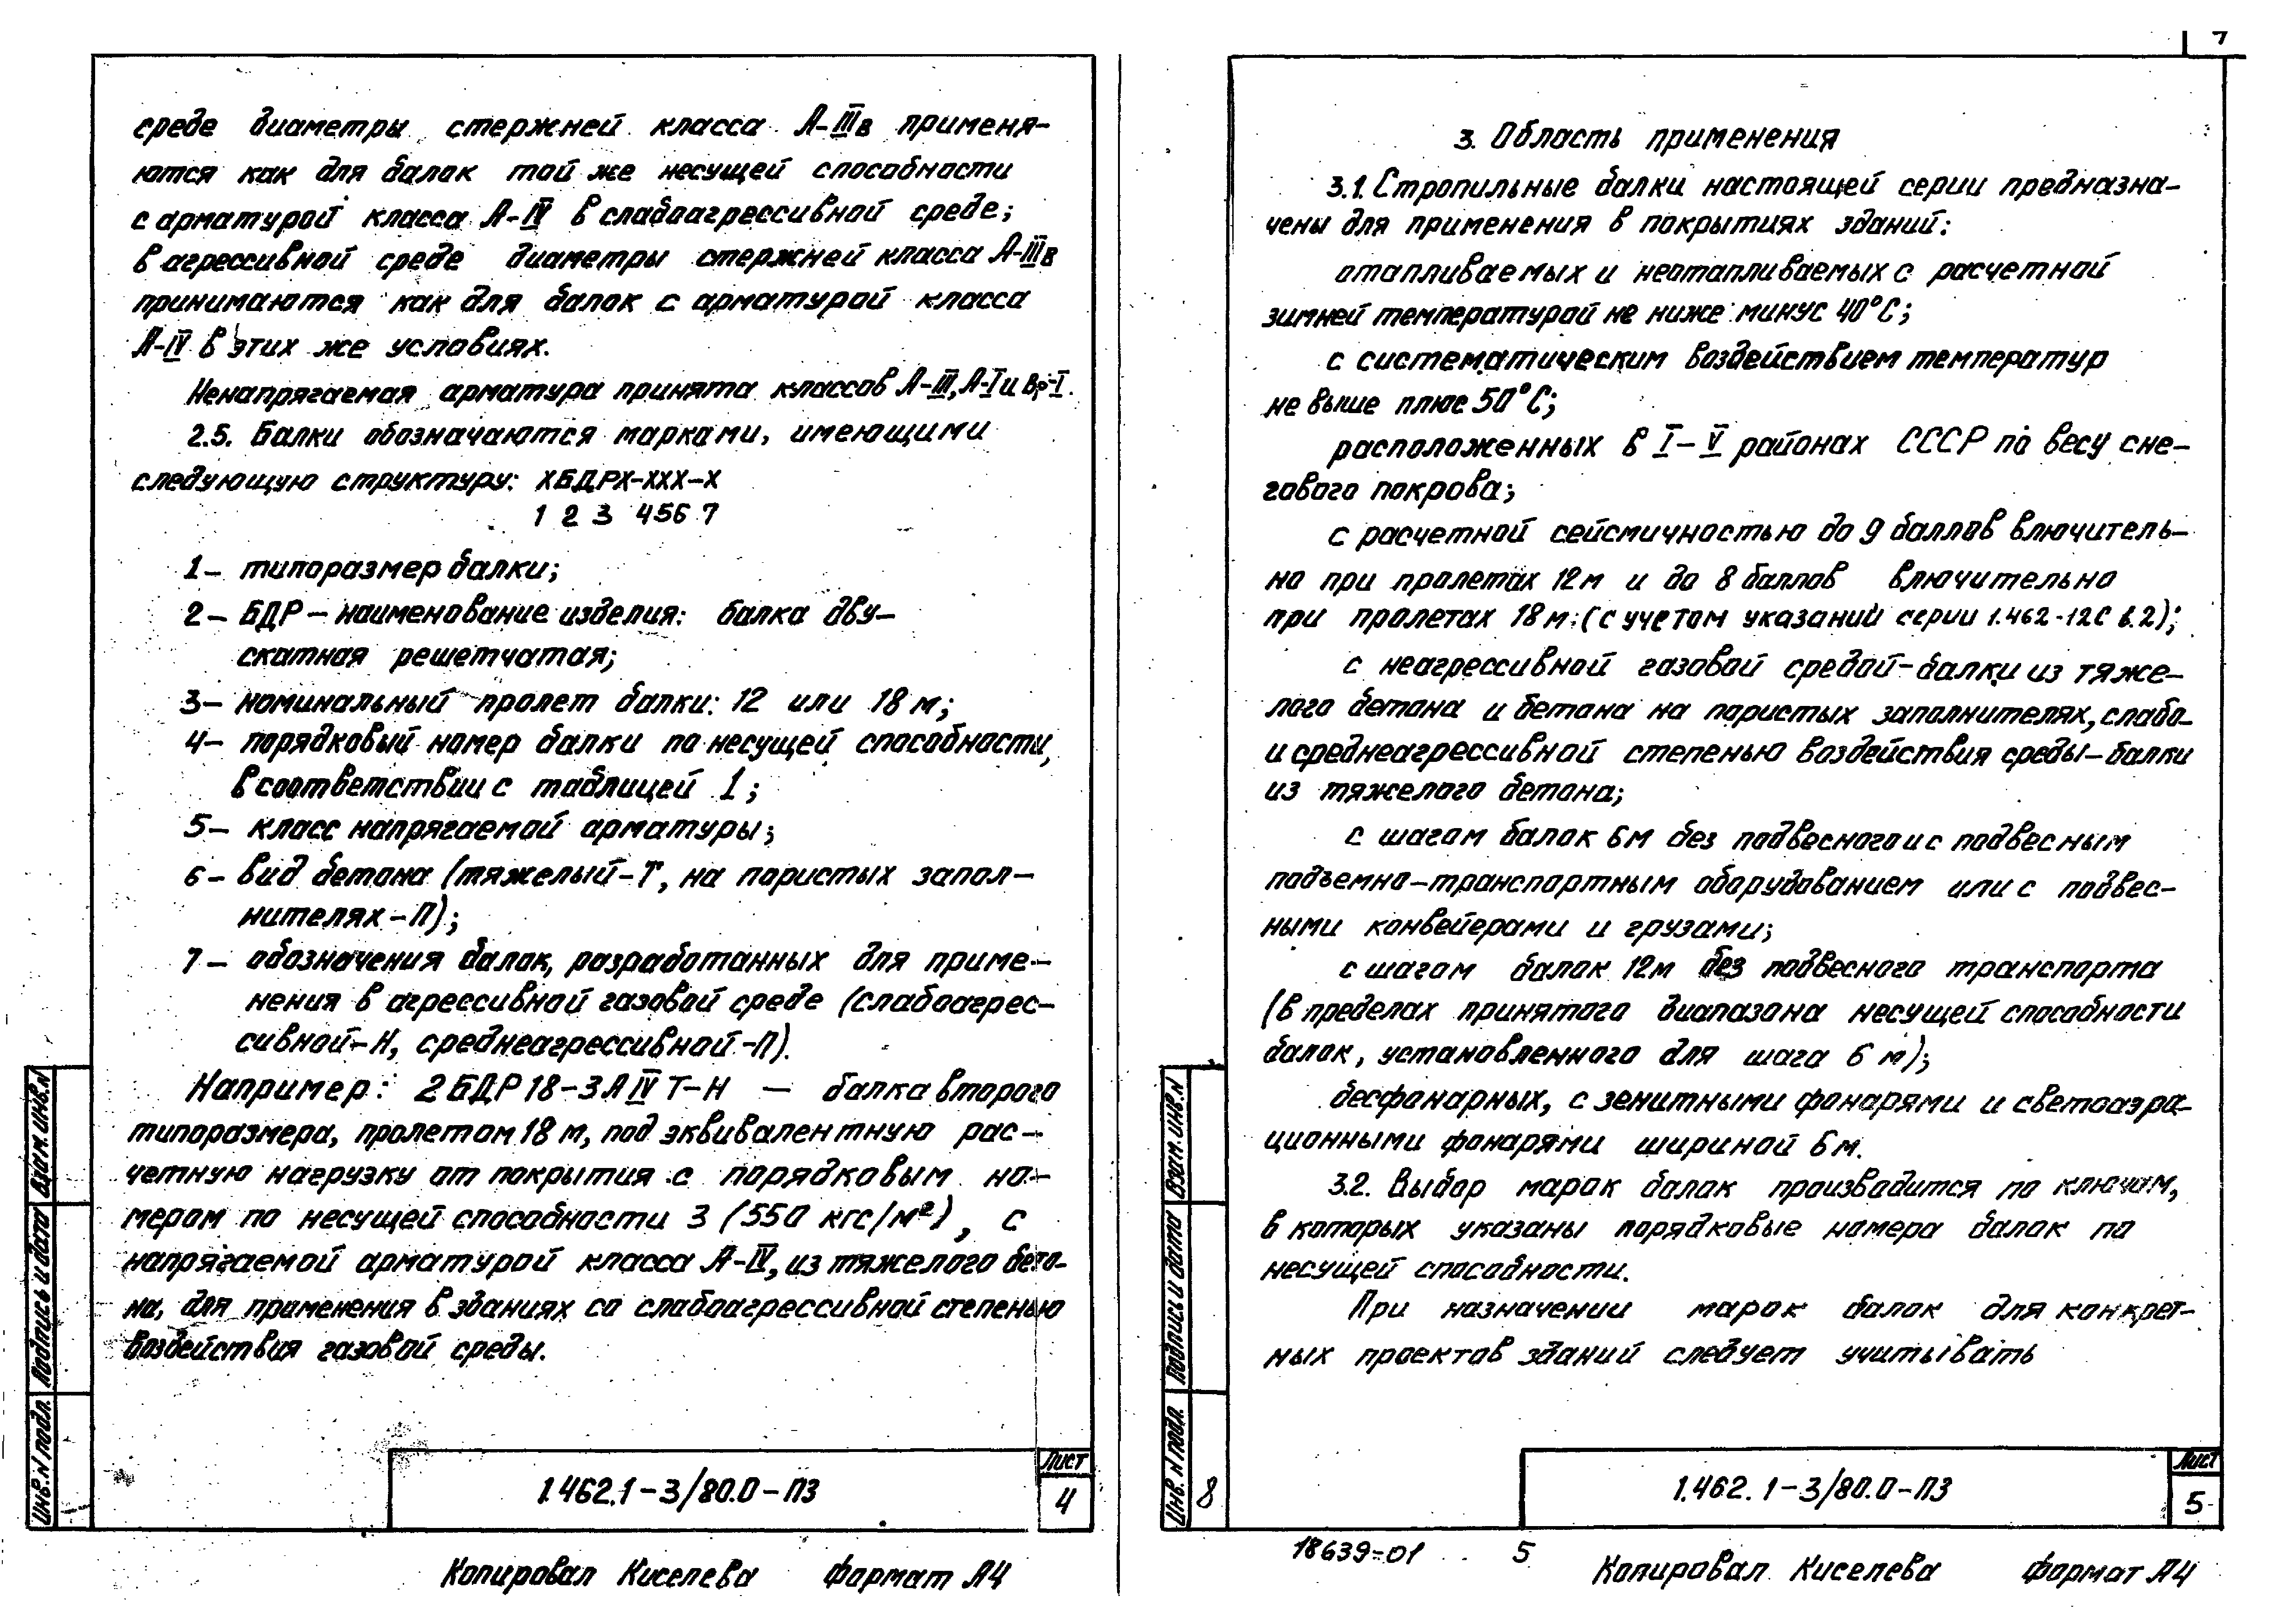 среде диаметры стержней класса А-IIIв применя-
ются как для балок той же несущей способности
с арматурой класса А-IV в слабоагрессивной среде;
в агрессивной среде диаметры стержней класса А-IIIв
принимаются как для балок с арматурой класса
А-IV в этих же условиях.
Ненапрягаемая арматура принята классов А-III, А-I и Вр-I.
2.5. Балки обозначаются марками, имеющими
следующую структуру: ХБДРХ-ХХХ-Х
1 2 3 456 7
1- типоразмер балки;
2- БДР - наименование изделия: балка дву-
скатная решетчатая;
3- номинальный пролет балки: 12 или 18 м;
4- порядковый номер балки по несущей способности,
в соответствии с таблицей 1;
5- класс напрягаемой арматуры;
6- вид бетона (тяжелый-Т, на пористых запол-
нителях-П);
7- обозначения балок, разработанных для приме-
нения в агрессивной газовой среде (слабоагрес-
сивной-Н, среднеагрессивной-П).
Например: 2БДР18-3АIVТ-Н — балка второго
типоразмера, пролетом 18 м, под эквивалентную рас-
четную нагрузку от покрытия с порядковым но-
мером по несущей способности 3 (550 кгс/м²), с
напрягаемой арматурой класса А-IV, из тяжелого бето-
на, для применения в зданиях со слабоагрессивной степенью
воздействия газовой среды.
Взам. инв. N
Подпись и дата
Инв. N подл.
1.462.1-3/80.0-ПЗ
Лист
4
Копировал Киселева Формат А4
7
3. Область применения
3.1. Стропильные балки настоящей серии предназна-
чены для применения в покрытиях зданий:
отапливаемых и неотапливаемых с расчетной
зимней температурой не ниже минус 40°С;
с систематическим воздействием температур
не выше плюс 50°С;
расположенных в I-V районах СССР по весу сне-
гового покрова;
с расчетной сейсмичностью до 9 баллов влючитель-
но при пролетах 12м и до 8 баллов влючительно
при пролетах 18м (с учетом указаний серии 1.462-12С в.2);
с неагрессивной газовой средой-балки из тяже-
лого бетона и бетона на пористых заполнителях, слабо-
и среднеагрессивной степенью воздействия среды-балки
из тяжелого бетона;
с шагом балок 6м без подвесного и с подвесным
подъемно-транспортным оборудованием или с подвес-
ными конвейерами и грузами;
с шагом балок 12м без подвесного транспорта
(в пределах принятого диапазона несущей способности
балок, установленного для шага 6 м);
бесфонарных, с зенитными фонарями и светоаэра-
ционными фонарями шириной 6м.
3.2. Выбор марок балок производится по ключам,
в которых указаны порядковые номера балок по
несущей способности.
При назначении марок балок для конкрет-
ных проектов зданий следует учитывать
Взам. инв. N
Подпись и дата
Инв. N подл.
8
1.462.1-3/80.0-ПЗ
Лист
5
18639-01 5
Копировал Киселева Формат А4